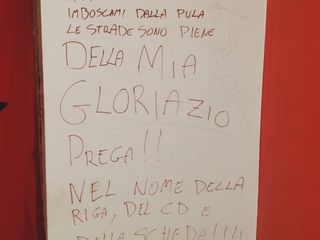 IMBOSCAMI DALLA PULA
LE STRADE SONO PIENE
DELLA MIA
GLORIA ZIO
PREGA!!
NEL NOME DELLA
RIGA, DEL CD E
DELLA SCHEDA!!!!